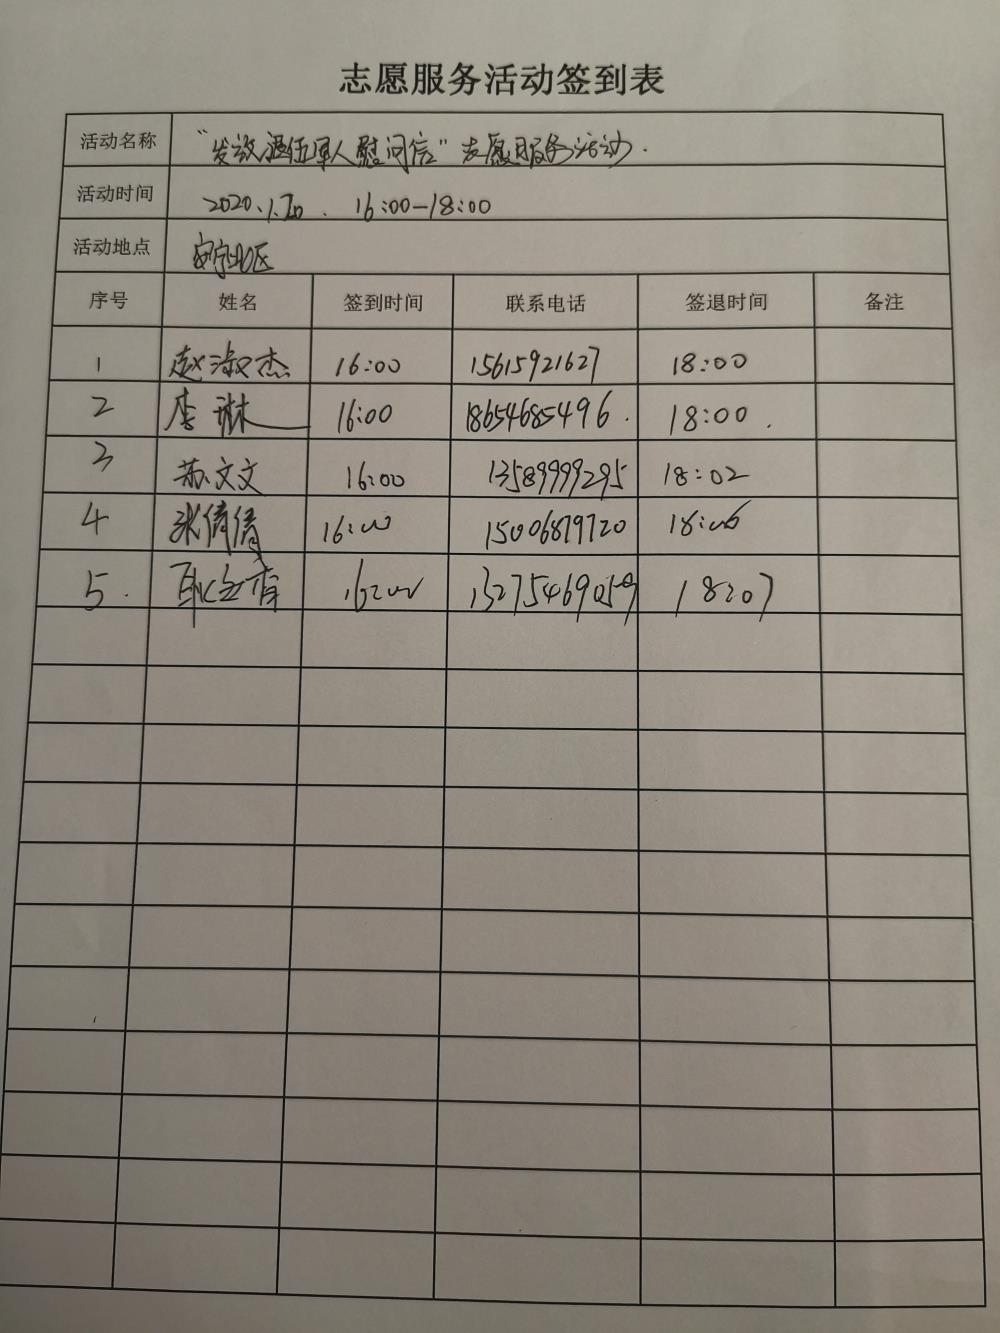 志愿服务活动签到表
活动名称 “发放退伍军人慰问信”志愿服务活动.
活动时间 2020.1.20. 16:00-18:00
活动地点 安宁北区
序号 姓名 签到时间 联系电话 签退时间 备注
1 赵淑杰 16:00 15615921627 18:00
2 李琳 16:00 18654685496. 18:00.
3 苏文文 16:00 13589999295 18:02
4 张倩倩 16:00 15006879720 18:06
5. 16:00 18:07